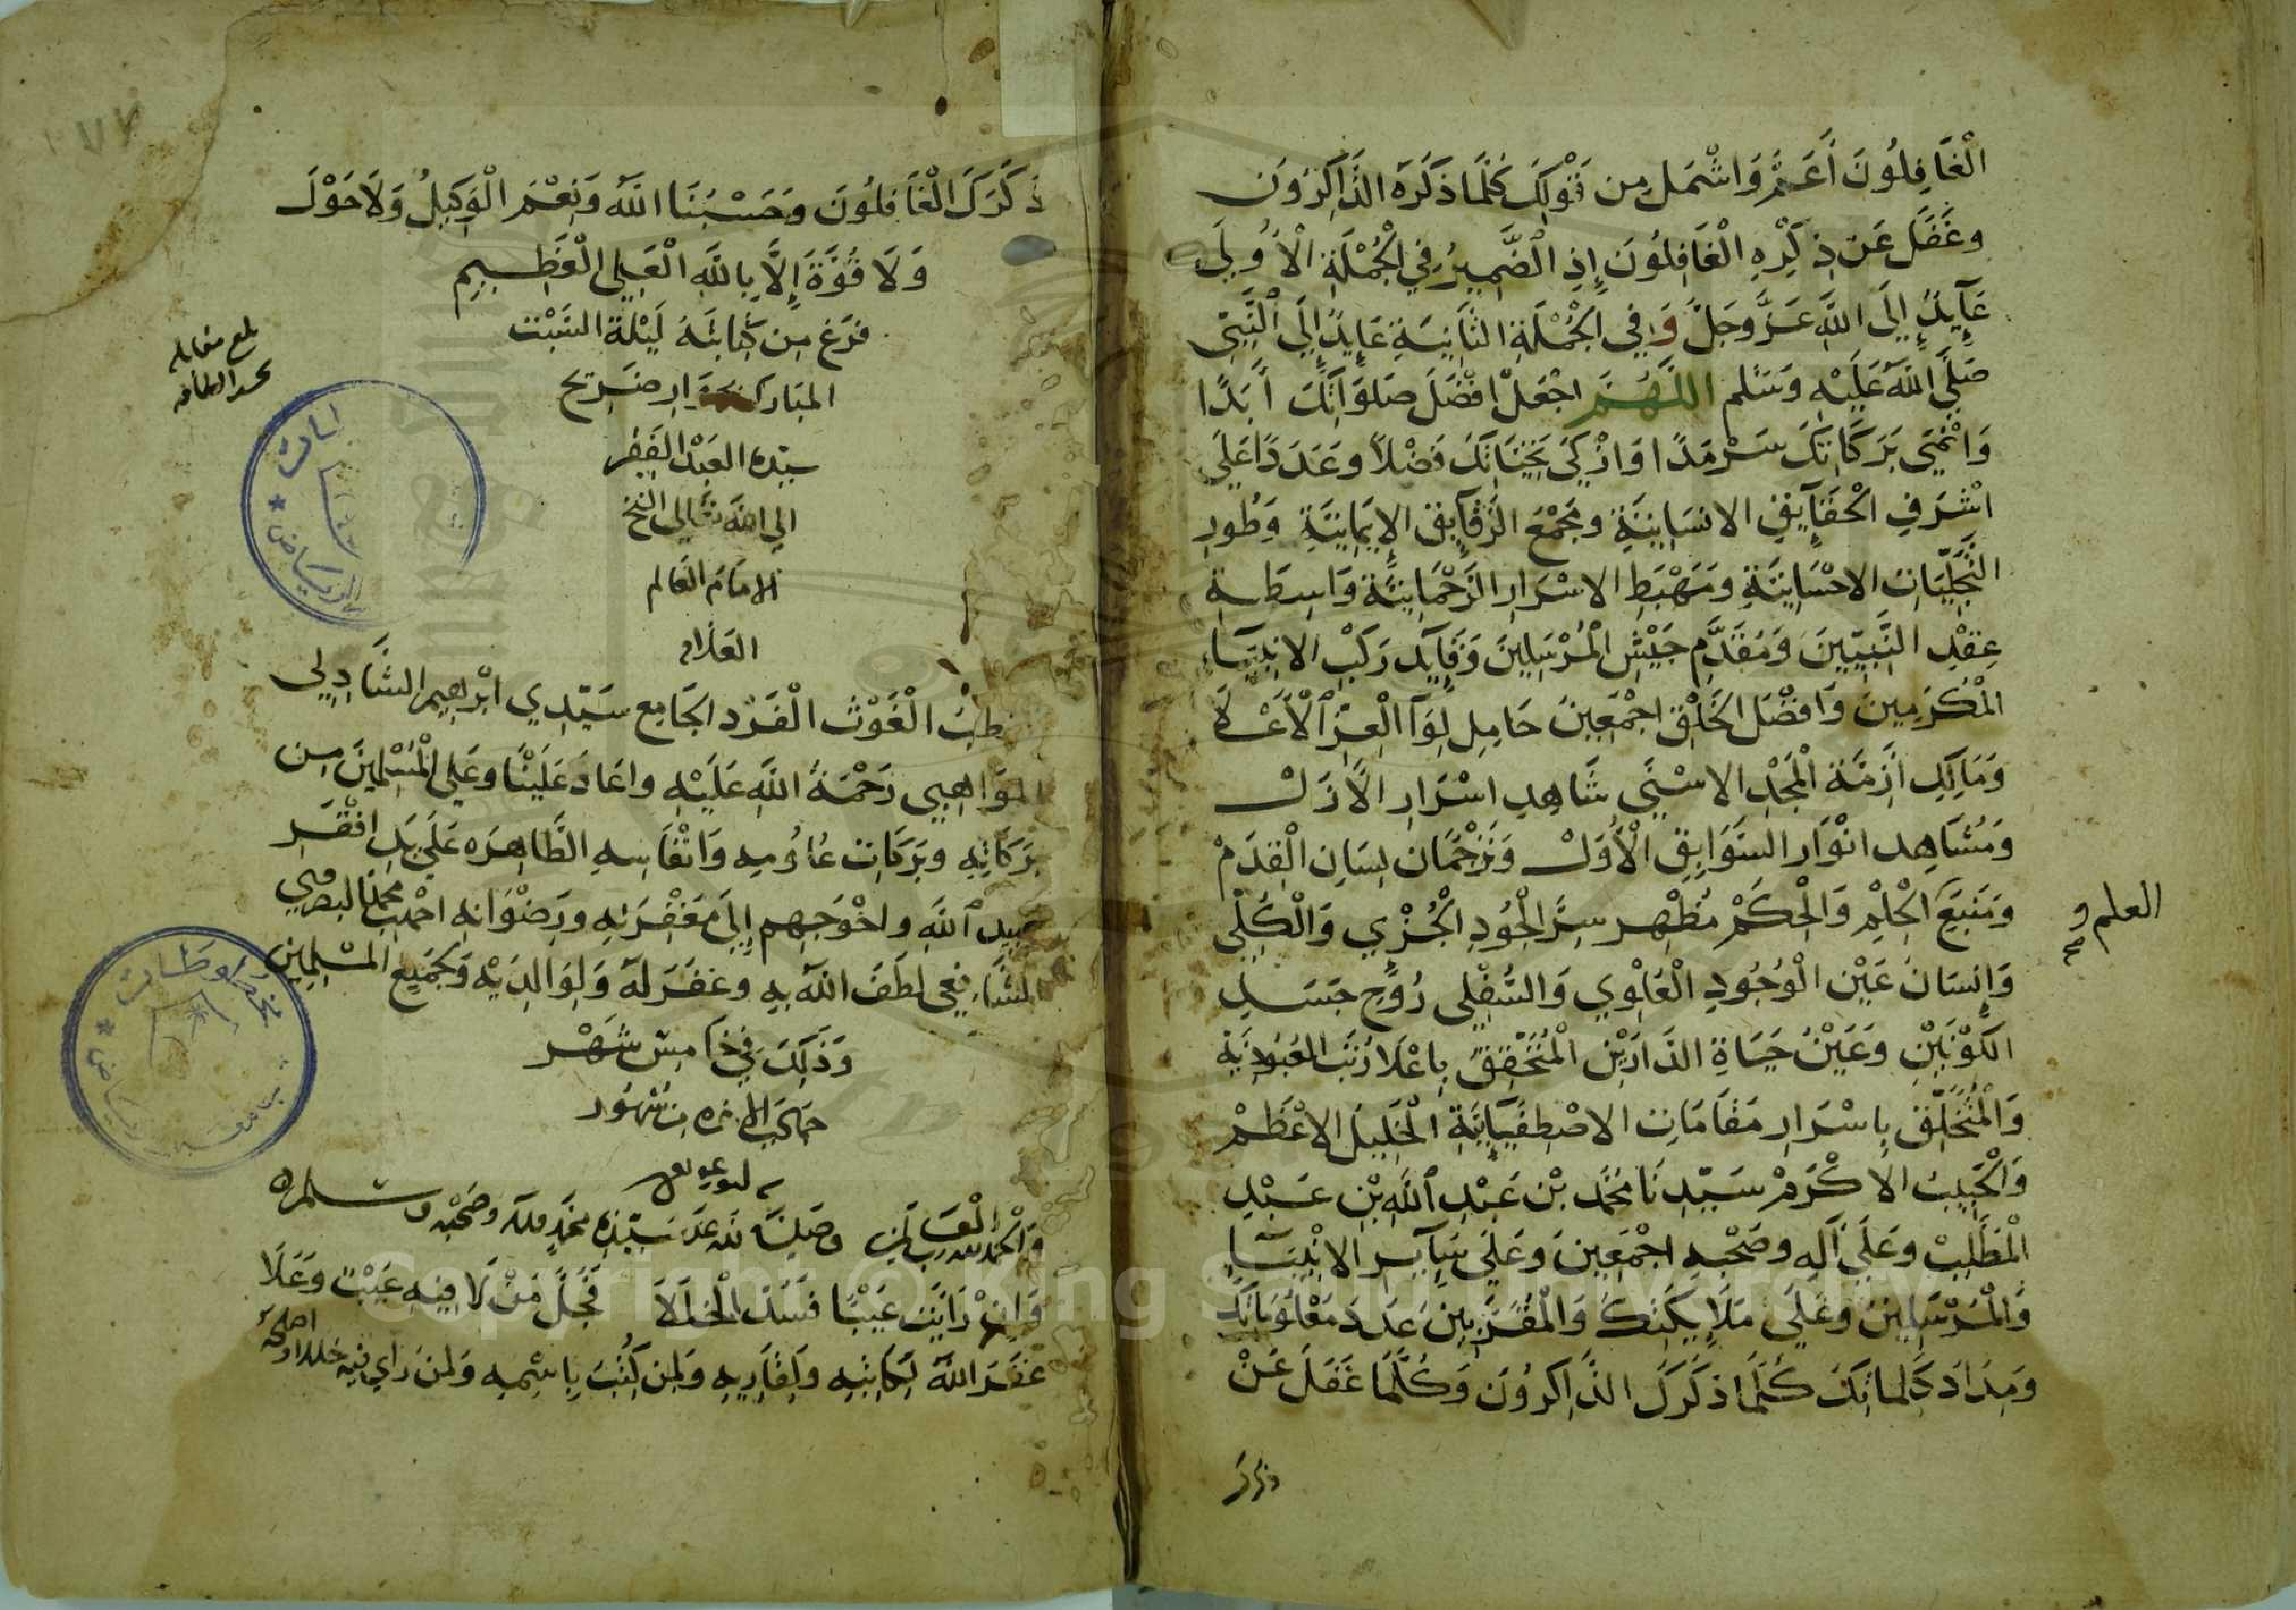 الْغَافِلُونَ أَعَمُّ وَاشْمَل مِن قَوْلِكَ كُلَّمَا ذَكَرَهُ الذَّاكِرُونَ
وَغَفَلَ عَنْ ذِكْرِهِ الْغَافِلُونَ إِذِ الضَّمِيرُ فِي الْجُمْلَةِ الْأُولَى
عَآيِدٌ إِلَى اللَّهِ عَزَّ وَجَلَّ وَفِي الْجُمْلَةِ الثَّانِيَةِ عَايِدٌ إِلَى النَّبِيّ
صَلَّى اللَّهُ عَلَيْهِ وَسَلم اللَّهُمَّ اجْعَلْ افْضَلَ صَلَوَاتِكَ أَبَدًا
وَانْمَى بَرَكَاتِكَ سَرْمَدًا وَازْكَى تَحِيَّاتِكَ فَضْلاً وعَدَدًا عَلَى
اشْرَفِ الْحَقَآيِقِ الانسَانِيَّةِ ومَجْمَعِ الرَّقَآيِقِ الإِيمَانِيَّةِ وَطُورِ
التَّجَلِّيَاتِ الاحْسَانِيَّةِ ومَهْبَطِ الاسْرَارِ الرَّحْمَانِيَّةِ وَاسِطَةِ
عِقْدِ النَّبِيِّينَ وَمُقَدَّمِ جَيْشِ الْمُرْسَلِينَ وَقَآيِدِ رَكْبِ الانبِيَآءِ
الْمُكْرَمِينَ وَافْضَلِ الخَلْقِ اجْمَعِينَ حَامِلِ لِوَآ الْعِزِّ الْأَعْلَا
وَمَالِكِ ازِمَّة الْمَجْدِ الاسْنَى شَاهِدِ اسْرَارِ الأَزَلْ
وَمُشَاهِدِ انْوَارِ السَّوَابِقِ الْأُوَلْ وَتَرْجُمَان لِسَانِ الْقِدَمْ
وَمَنْبَعِ الْحِلْمِ وَالْحِكَمْ مُظْهِر سِرِّ الْجُودِ الْجُزْيِ وَالْكُلِّي
العلم و
صح
وَإِنسَانِ عَيْنِ الْوُجُودِ الْعُلْوِي وَالسُّفْلِي رُوحِ جَسَدِ
الكَوْنَيْنِ وَعَيْنِ حَيَاةِ الدَّارَيْنِ الْمُتَحَقِّقِ بِاعْلَا رُتَبِ العُبُودِيَّةِ
وَالْمُتَخَلِّقِ بِاسْرَارِ مَقَامَاتِ الاصْطِفَآئِيَّةِ الْخَلِيلِ الاعْظَمْ
وَالْحَبِيبِ الاكْرَمْ سَيِّدِنَا مُحَمَّد بْنِ عَبْدِ اللَّهِ بْنِ عَبْدِ
الْمُطَّلِبْ وعَلَى آلِهِ وصَحْبِهِ اجْمَعِينَ وَعَلَى سَآيِرِ الانْبِيَآءِ
وَالْمُرْسَلِينَ وَعَلَى مَلَايِكَتِكَ وَالْمُقَرَّبِينَ عَدَدَ مَعْلُومَاتِكَ
وَمِدَادَ كَلِمَاتِكَ كُلَّمَا ذَكَرَكَ الذَّاكِرُونَ وَكُلَّمَا غَفَلَ عَنْ
ذكرك
ذِكْرِكَ الْغَافِلُونَ وَحَسْبُنَا اللَّهُ وَنِعْمَ الْوَكِيلُ وَلَا حَوْلَ
وَلَا قُوَّةَ إِلَّا بِاللَّهِ الْعَلِي الْعَظِيمِ
فرَغ مِن كِتَابَتَهُ لَيْلَةُ السَّبْت
المبَارك بجوار ضَريح
سيّده العَبْدُ الفَقِير
الى الله تعَالى الشيخ
الامَام العَالم
العَلّام
قطبْ الْغَوْث الْفَرْد الجَامِع سَيِّدِي ابْرهيم الشَّاذِلِي
المَوَاهِبِي رَحْمَةُ اللَّهِ عَلَيْهِ واعَادَ عَلَيْنَا وعَلى الْمُسْلِمِينَ مِن
بَرَكَاتِهِ وبَرَكَاتِ عُلُومِهِ وَانْفَاسِهِ الطَّاهِرَه عَلَى يَدِ افْقَرِ
عَبِيدِ اللَّهِ واحْوَجِهِم إِلَى مَغْفِرَتِهِ ورِضْوَانِهِ احمد بن محمد البصروي
الشَّافِعِي لطَفَ اللَّهُ بِهِ وغفَرَ لَهُ وَلِوَالِدَيْهِ وَلجَمِيعِ الْمُسْلِمِينَ
وَذَلِكَ فِي خَامِسْ شَهْر
جمادى الاخره من شهُور
وَالْحَمْدُ لله رَبّ الْعَالمين وصَلى الله على سَيّدنا محمد وآله وصَحْبِه وسلم
وَإِنْ رَايْتَ عَيْبًا فَسُدَّ الْخَلَلَا فَجَلَّ مَنْ لَا فِيهِ عَيْبٌ وَعَلَا
غفَرَ اللَّهُ لِكَاتِبِه وَلِقَارِيهِ وَلِمن كُتِبَ بِاسْمِهِ وَلِمن رَاي فِيهِ خللا واصلحه
بلغ مقابله
بحسب الطاقه
الرياض
مخطوطات
جامعة
الرياض
Copyright © King Saud University